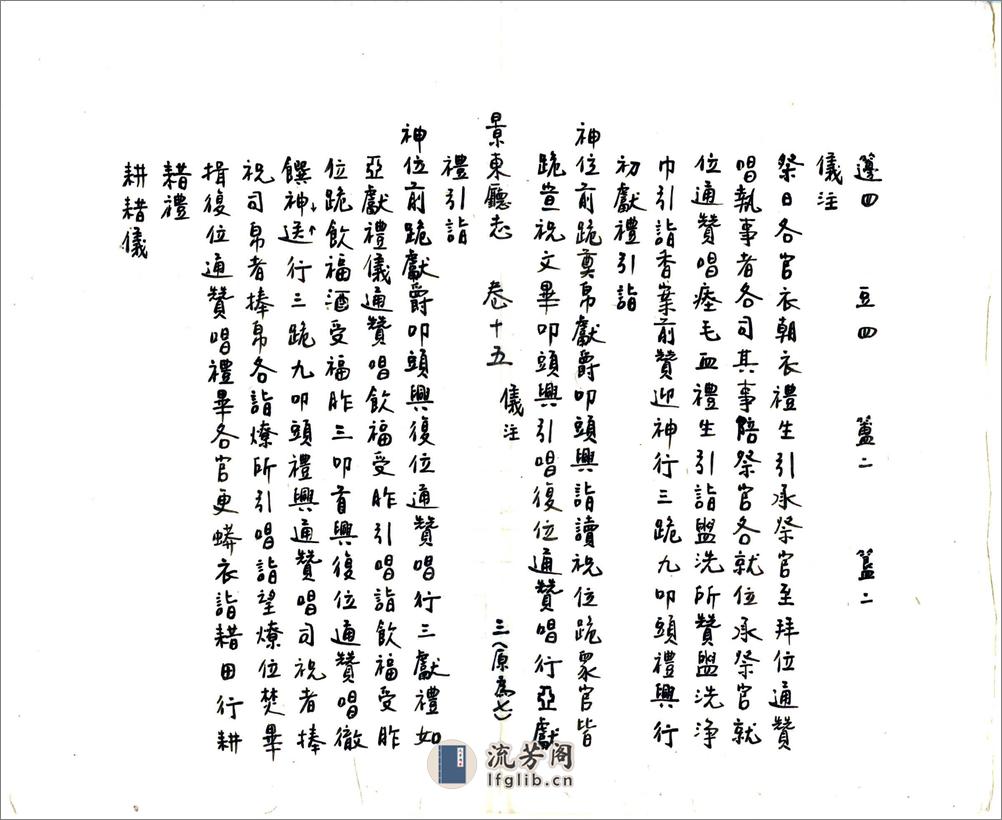 籩四 豆四 簠二 簋二
儀注
祭日各官衣朝衣禮生引承祭官至拜位通贊
唱執事者各司其事陪祭官各就位承祭官就
位通贊唱瘞毛血禮生引詣盥洗所贊盥洗淨
巾引詣香案前贊迎神行三跪九叩頭禮興行
初獻禮引詣
神位前跪奠帛獻爵叩頭興詣讀祝位跪眾官皆
跪宣祝文畢叩頭興引唱復位通贊唱行亞獻
景東廳志 卷十五 儀注 三(原為七)
禮引詣
神位前跪獻爵叩頭興復位通贊唱行三獻禮如
亞獻禮儀通贊唱飲福受胙引唱詣飲福受胙
位跪飲福酒受福胙三叩首興復位通贊唱徹
饌神送行三跪九叩頭禮興通贊唱司祝者捧
祝司帛者捧帛各詣燎所引唱詣望燎位焚畢
揖復位通贊唱禮畢各官更蟒衣詣耤田行耕
耤禮
耕耤儀
流芳阁
lfglib.cn